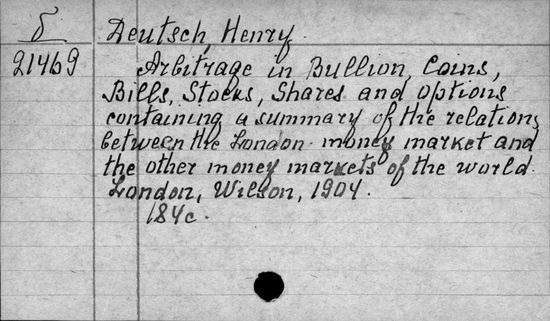 δ
21469
Deutsch, Henry.
Arbitrage in Bullion, Coins,
Bills, Stocks, Shares and options
containing a summary of the relations
between the London money market and
the other money markets of the world.
London, Wilson, 1904.
184c.